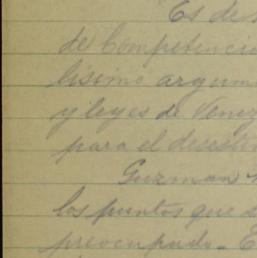 Es de
de Competencia
lisimo argum
y leyes de Venez
para el
Guzman
los puntos que
preocupado. E